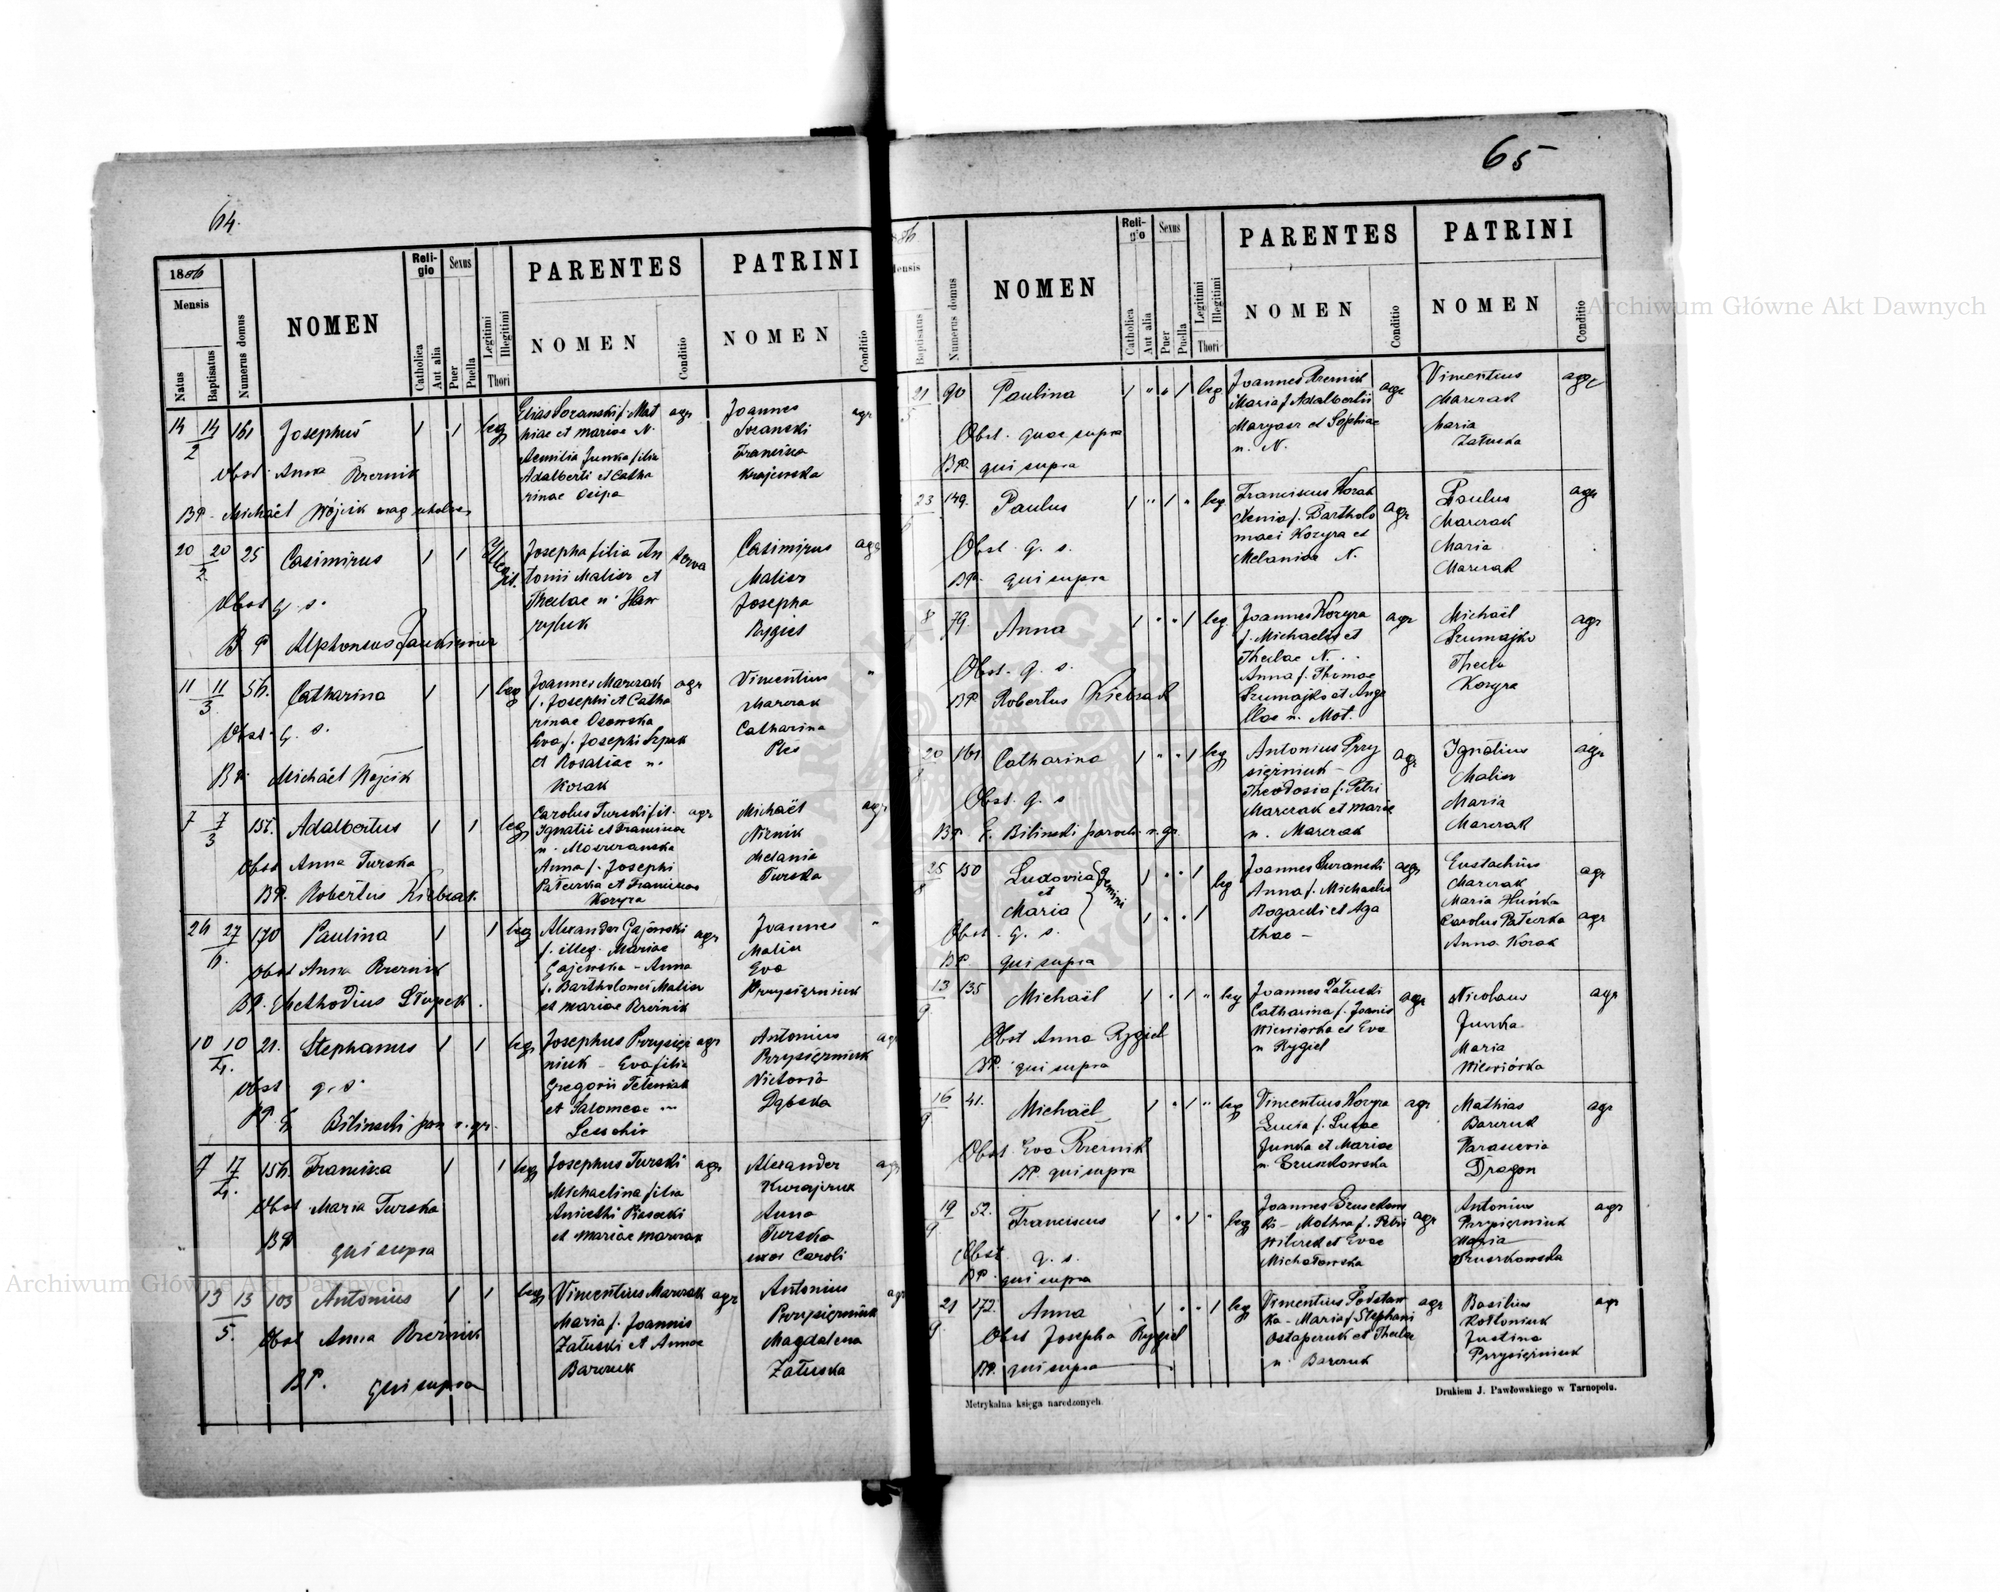 64.
1886
Mensis
Natus
Baptisatus
Numerus domus
NOMEN
Religio
Catholica
Aut alia
Sexus
Puer
Puella
Legitimi
Illegitimi
Thori
PARENTES
NOMEN
Conditio
PATRINI
NOMEN
Conditio
14 14/2 161 Josephus 1 1 leg
Obst. Anna Brernik
BP. Michaël Wójcik
Elias Soranski f. Mat
hiae et Mariae N.
Aemilia Junka filia
Adalberti et Catha
rinae Osipa
agr
Joannes
Soranski
Francisca
Krajewska
agr
20 20/2 25 Casimirus 1 1 Illegit.
Obst q. s.
BP Alphonsus
Josepha filia An
tonii Malisz et
Theclae n.
serva
Casimirus
Malisz
Josepha
Rygiel
agr
11 11/3 56. Catharina 1 1 leg
Obst. q. s.
BP. Michaël Wójcik
Joannes Marczak
f. Josephi et Catha
rinae Osowska
Eva f. Josephi Szpak
et Rosaliae n.
Korak
agr
Vincentius
Marczak
Catharina
"
7 7/3 157. Adalbertus 1 1 leg
Obst Anna Turska
BP. Robertus Kiebzak.
Carolus Turski fil.
Ignatii et Francisca
Anna f. Josephi
Paterka et Franciscae
Kozyra
agr
Michaël
Nirnik
Melania
Turska
agr
26 27 170 Paulina 1 1 leg
Obst Anna Brernik
BP. Methodius Slupek.
Alexander Gajewski
f. illeg. Mariae
Gajewska - Anna
f. Bartholomei Malisz
et Mariae Brernik
agr
Joannes
Malisz
Eva
Przysiężniuk
"
10 10/4. 21. Stephanus 1 1 leg
Obst q. s.
BP. E. Bilinski par r. gr.
Josephus Przysięż
niuk - Eva filia
Gregorii Teteniak
et Salomeae n.
agr
Antonius
Przysiężniuk
Victoria
Dąbska
agr
7 17/4. 156. Francisca 1 1 leg
Obst Maria Turska
BP qui supra
Josephus Turski
Michaelina filia
Anicetti Piasecki
et Mariae Marczak
agr
Alexander
Anna
Turska
uxor Caroli
agr
13 13/5. 103 Antonius 1 1 leg
Obst Anna Brernik
BP. qui supra
Vincentius Marczak
Maria f. Joannis
Załuski et Annae
Barczuk
agr
Antonius
Przysiężniuk
Magdalena
Załuska
agr
65
Mensis
Baptisatus
Numerus domus
NOMEN
Religio
Catholica
Aut alia
Sexus
Puer
Puella
Legitimi
Illegitimi
Thori
PARENTES
NOMEN
Conditio
PATRINI
NOMEN
Conditio
21/5 90 Paulina 1 " " 1 leg
Obst. quae supra
BP. qui supra
Joannes Brernik
Maria f. Adalberti
et Sophiae
n. N.
agr
Vincentius
Marczak
Maria
Załuska
agr
23 149. Paulus 1 " 1 " leg
Obst. q. s.
BP. qui supra
Franciscus Korak
Xenia f. Bartholo
maei Kozyra et
Melaniae N.
agr
Paulus
Marczak
Maria
Marczak
agr
8 79. Anna 1 " " 1 leg
Obst. q. s.
BP Robertus Kiebzak
Joannes Kozyra
f. Michaelis et
Theclae N. . .
Anna f. Thomae
Szumajko et Ange
llae n. Mot.
agr
Michaël
Szumajko
Thecla
Kozyra
agr
20 161 Catharina 1 " " 1 leg
Obst. q. s
BP. E. Bilinski paroch. r. gr.
Antonius Przy
siężniuk -
Theodosia f. Petri
Marczak et Maria
n. Marczak
agr
Ignatius
Malisz
Maria
Marczak
agr
25/8 150 Ludovica
et
Maria
gemini
1 " " 1
leg
1 " " 1
Obst. q. s.
BP. qui supra
Joannes Suranski
Anna f. Michaelis
Bogacki et Aga
thae -
agr
Eustachius
Marczak
Maria Hunka
Carolus Paterka
Anna Korak
agr
agr
13/9 135 Michaël 1 " 1 " leg
Obst Anna Rygiel
BP. qui supra
Joannes Załuski
Catharina f. Joannis
Wiewiórka et Eva
n Rygiel
agr
Nicolaus
Junka
Maria
Wiewiórka
agr
16/9 41. Michaël 1 " 1 " leg
Obst. Eva Brernik
BP. qui supra
Vincentius Kozyra
Lucia f. Lucae
Junka et Mariae
n. Gruszkowska
agr
Mathias
Barczuk
Parascevia
Dragon
agr
19/9 52. Franciscus 1 " 1 " leg
Obst q. s.
BP. qui supra
Joannes Gruszkows
ki - Mothra f. Petri
Witrek et Evae
Michałowska
agr
Antonius
Przysiężniuk
Maria
Gruszkowska
agr
21/9 172. Anna 1 " " 1 leg
Obst Josepha Rygiel
BP. qui supra
Vincentius Podstaw
ka - Maria f Stephani
Ostapczuk et Thecla
n. Barczuk
agr
Basilius
Kotłoniuk
Justina
Przysiężniuk
agr
Metrykalna księga narodzonych.
Drukiem J. Pawłowskiego w Tarnopolu.
Archiwum Główne Akt Dawnych
Archiwum Główne Akt Dawnych